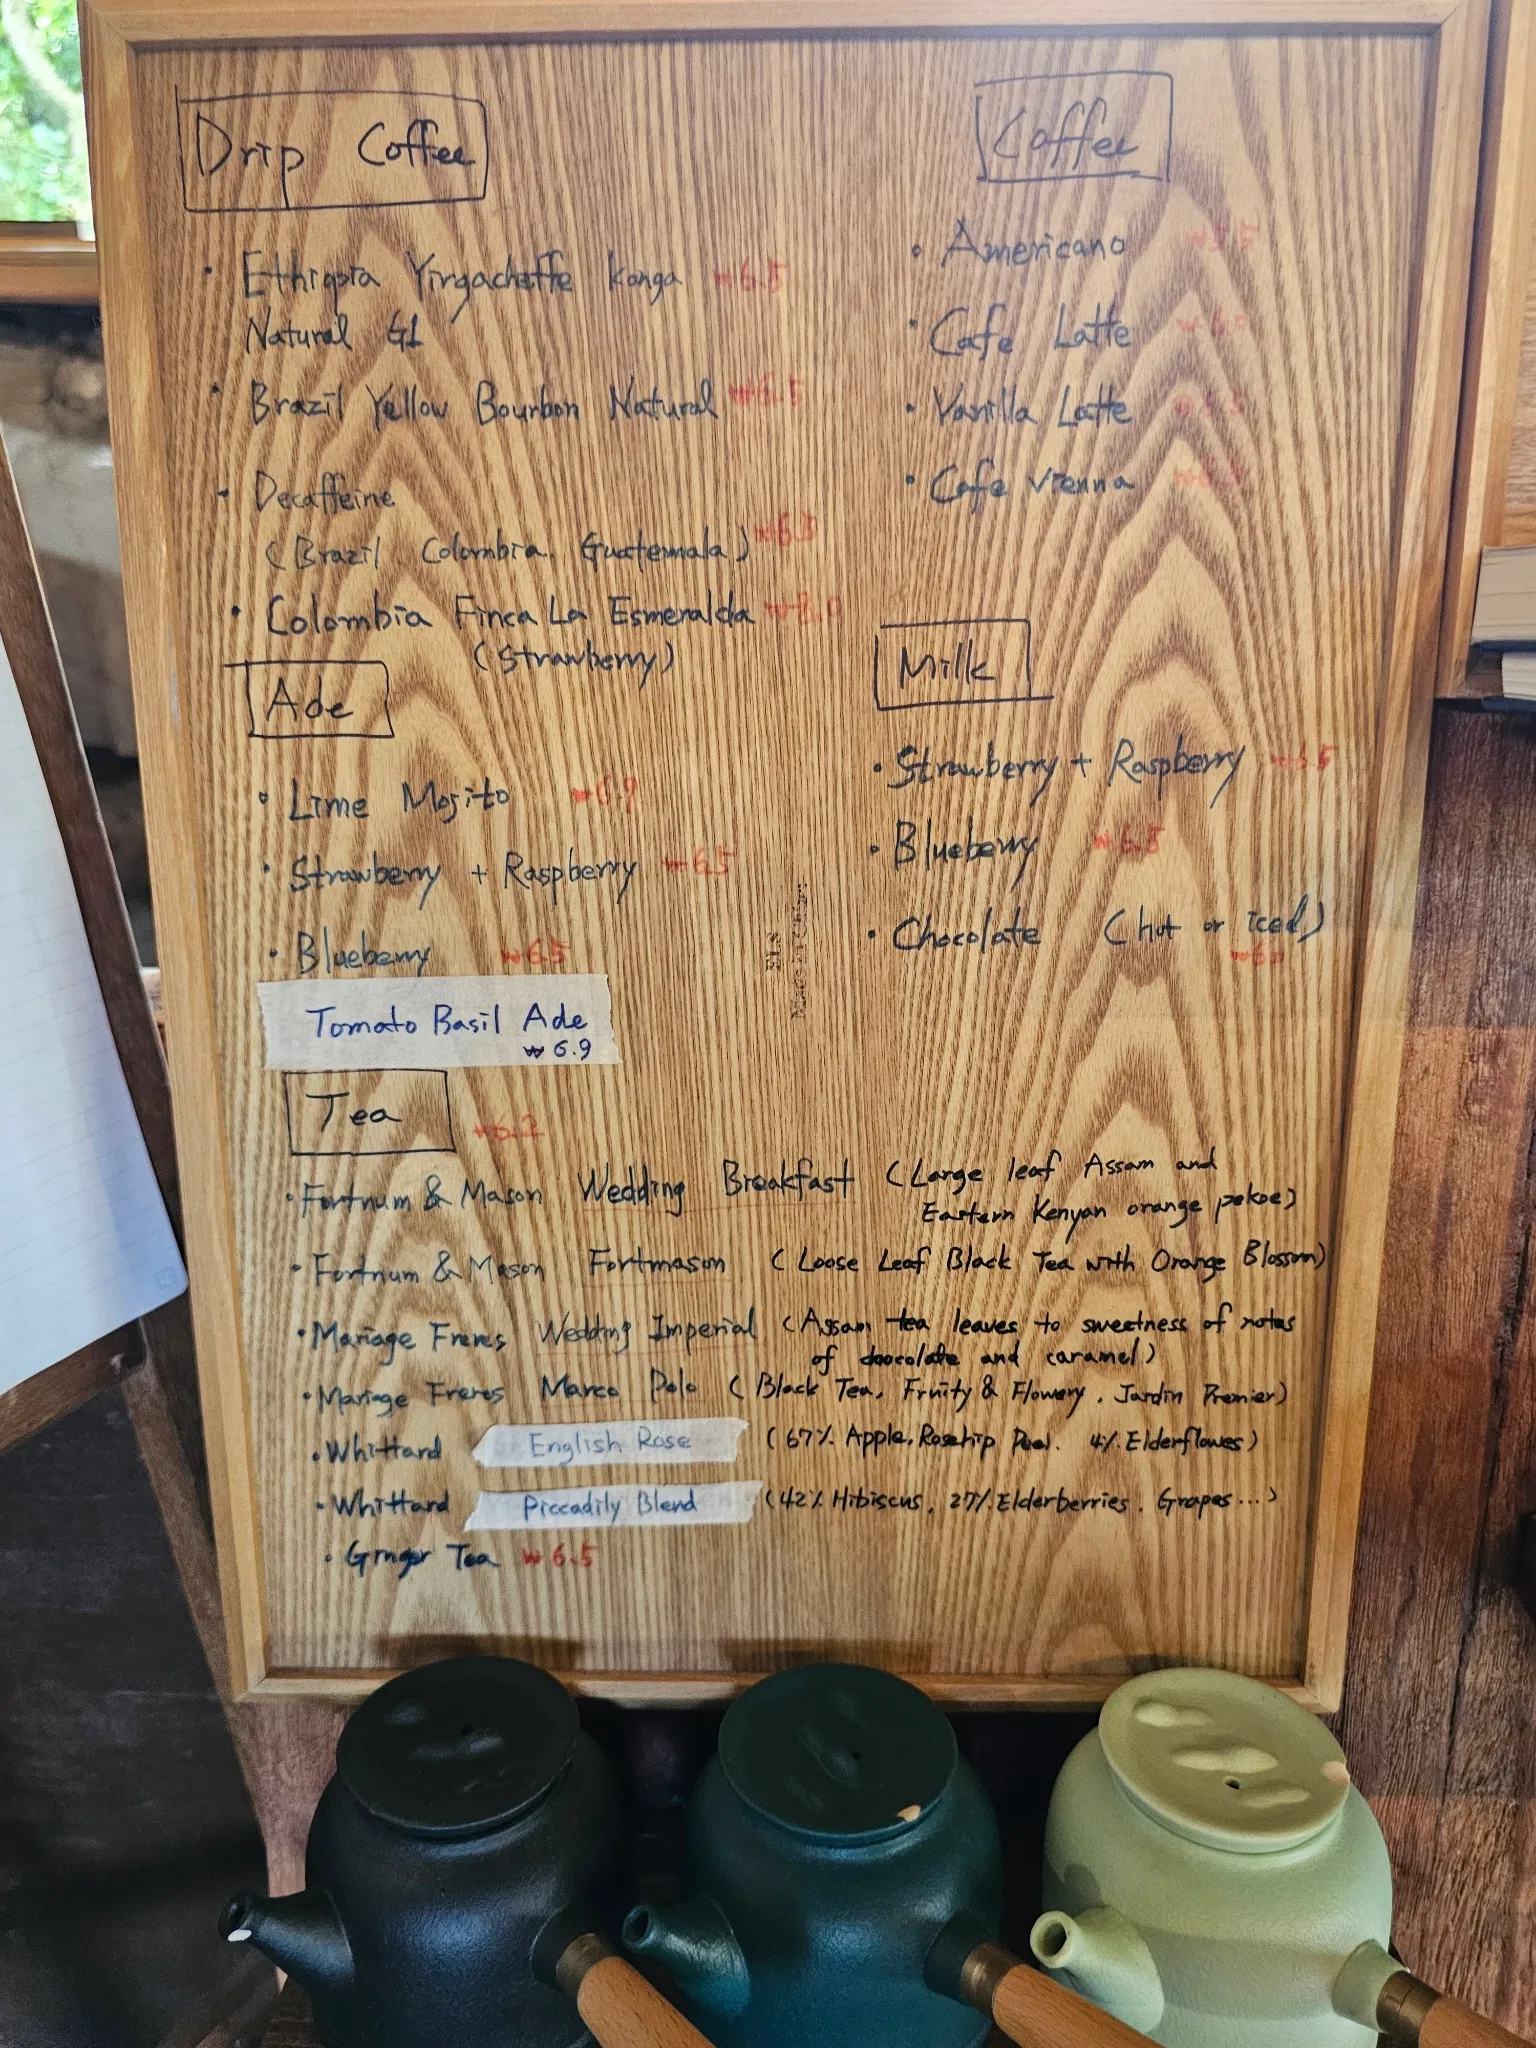 Drip Coffee
• Ethiopia Yirgacheffe Konga ₩6.5
Natural G1
• Brazil Yellow Bourbon Natural ₩6.5
• Decaffeine
(Brazil Colombia. Guatemala)
• Colombia Finca La Esmeralda ₩8.0
(Strawberry)
Ade
• Lime Mojito ₩6.9
• Strawberry + Raspberry ₩6.5
• Blueberry ₩6.5
Tomato Basil Ade
₩6.9
Coffee
• Americano
• Cafe Latte
• Vanilla Latte
• Cafe Vienna
Milk
• Strawberry + Raspberry ₩6.5
• Blueberry ₩6.5
• Chocolate (hot or iced)
Tea
• Fortnum & Mason Wedding Breakfast (Large leaf Assam and
Eastern Kenyan orange pekoe)
• Fortnum & Mason Fortmason (Loose Leaf Black Tea with Orange Blossom)
• Mariage Freres Wedding Imperial (Assam tea leaves to sweetness of notes
of chocolate and caramel)
• Mariage Freres Marco Polo (Black Tea, Fruity & Flowery. Jardin Premier)
• Whittard English Rose (67% Apple, Rosehip Peel. 4% Elderflowes)
• Whittard Piccadily Blend (42% Hibiscus, 27% Elderberries. Grapes...)
• Ginger Tea ₩6.5